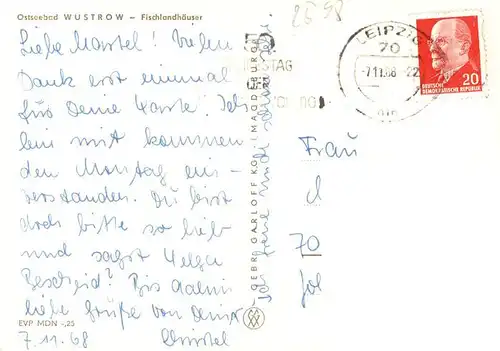 Ostseebad WUSTROW – Fischlandhäuser
Liebe Martel! Vielen
Dank erst einmal
für Deine Karte. Ich
bin mit kommen
den Montag ein-
verstanden. Du bist
doch bitte so lieb
und sagst Helga
Bescheid? Bis dahin
liebe Grüße von Deiner
Christel
Ich freue mich schon sehr.
EVP MDN -,25
7.11.68
GEBR. GARLOFF KG. MAGDEBURG
2598
LEIPZIG
70
-7.11.68 -22
STAG
20
DEUTSCHE
DEMOKRATISCHE REPUBLIK
Frau
d
70
Jol